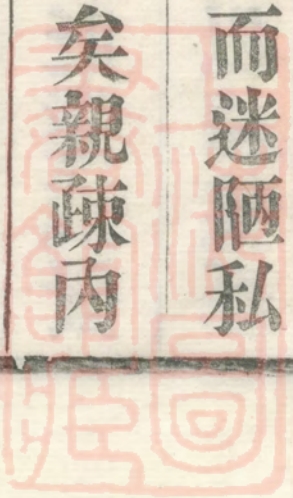 而迷陋私
矣親疎内